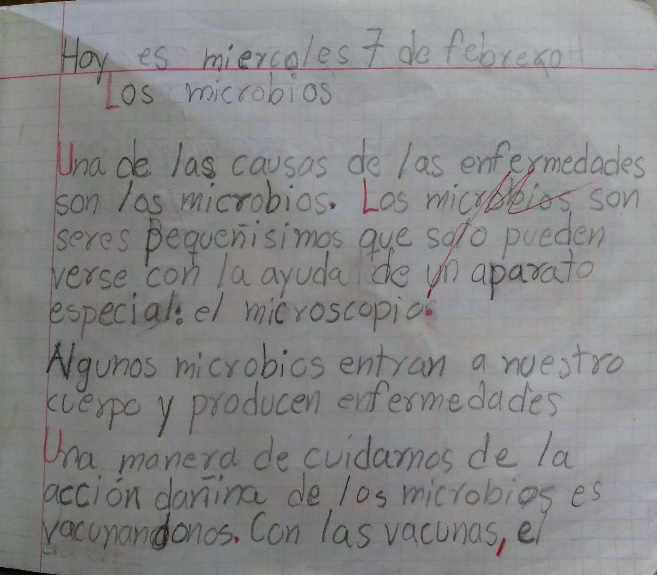 Hoy es miercoles 7 de febrero
Los microbios
Una de las causas de las enfermedades
son los microbios. Los microbios son
seres pequeñisimos que solo pueden
verse con la ayuda de un aparato
especial: el microscopio.
Algunos microbios entran a nuestro
cuerpo y producen enfermedades
Una manera de cuidarnos de la
acción dañina de los microbios es
vacunandonos. Con las vacunas, el